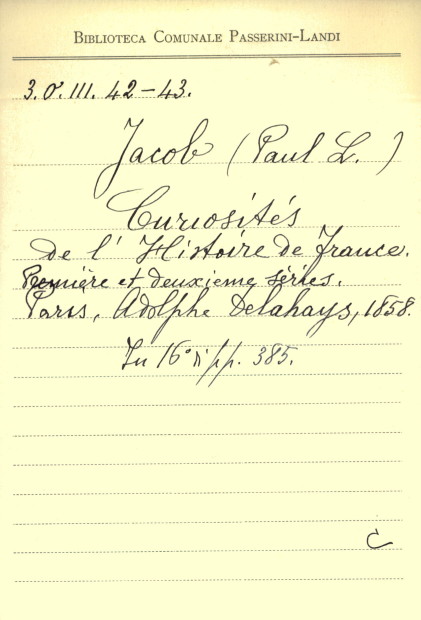 BIBLIOTECA COMUNALE PASSERINI-LANDI
3.O.III. 42-43.
Jacob (Paul L.)
Curiosités
de l'Histoire de France.
Première et deuxième séries.
Paris, Adolphe Delahays, 1858.
In 16° di pp. 385.
C